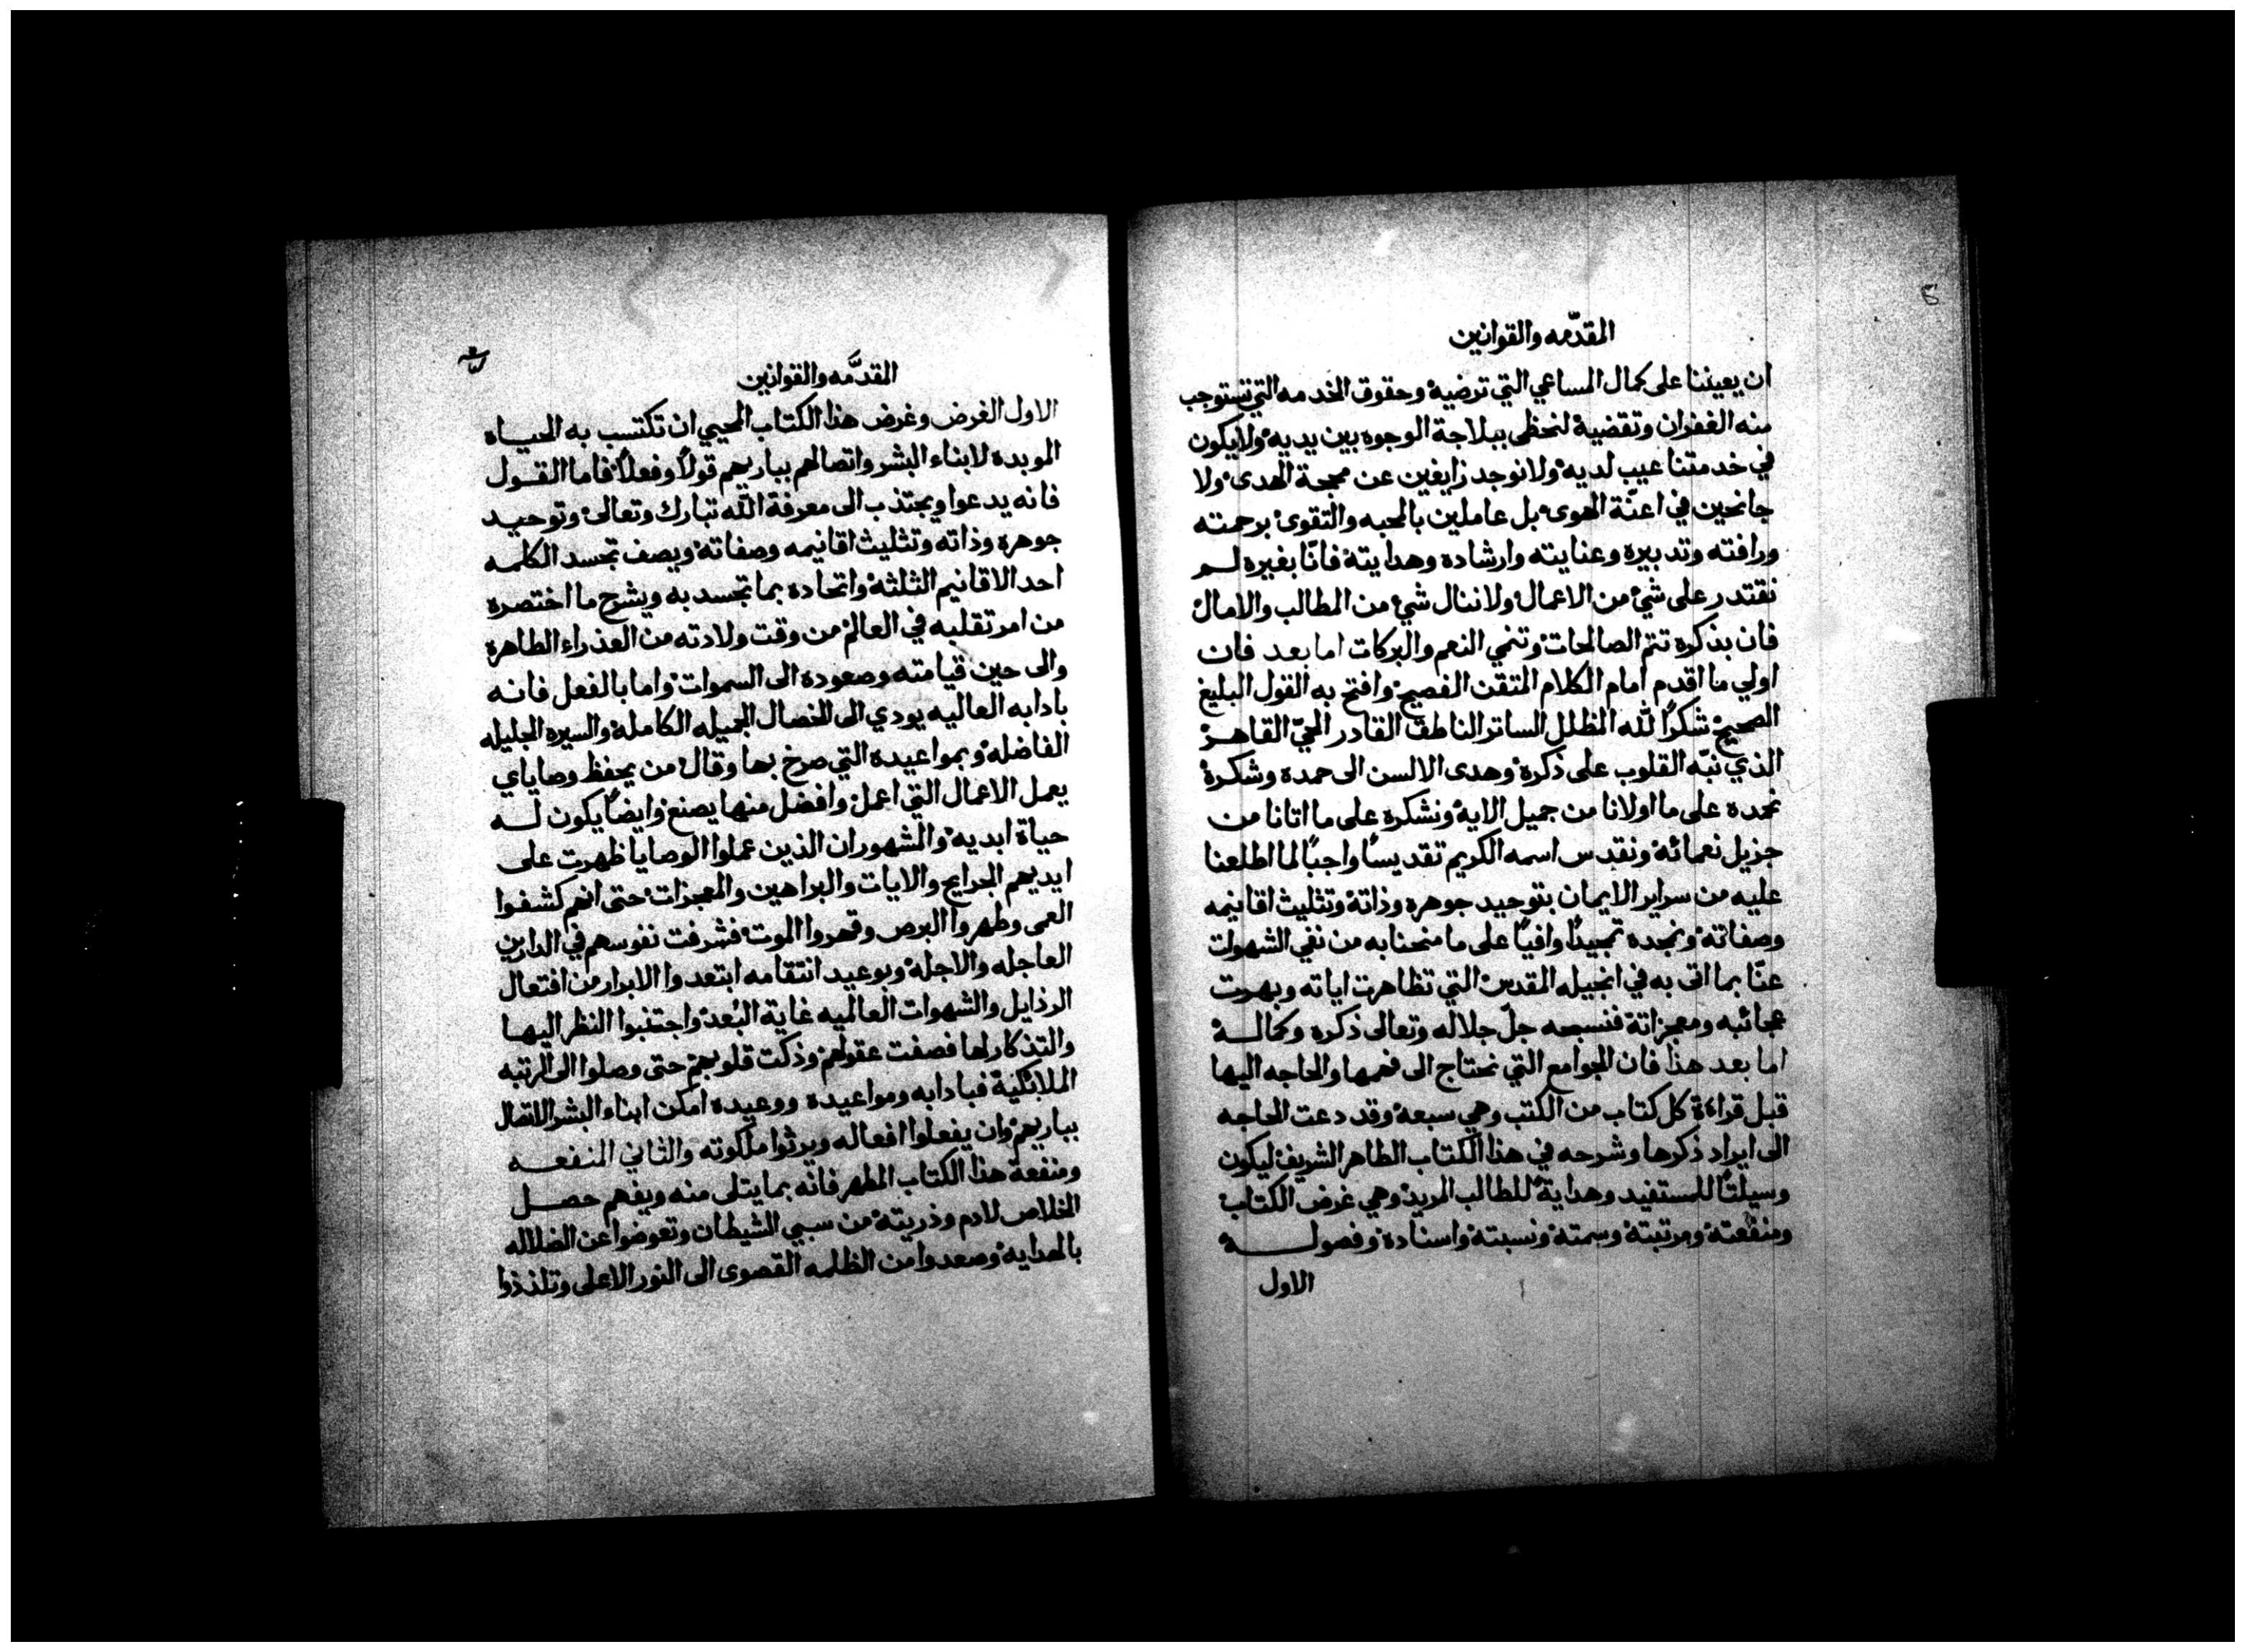 المقدّمه والقوانين
ان يعيننا على كمال المساعي التي ترضيه وحقوق الخدمه التي تستوجب
منه الغفران وتقضية لنحظى ببلاجة الوجوه بين يديه ولا يكون
في خدمتنا عيب لديه ولا نوجد زايغين عن محجة الهدى ولا
جانحين في اعنّة الهوى بل عاملين بالمحبه والتقوى برحمته
ورافته وتدبيره وعنايته وارشاده وهدايته فانّا بغيره لم
نقتدر على شيء من الاعمال ولا ننال شي من المطالب والامال
فان بذكره تتم الصالحات وتنمي النعم والبركات اما بعد فان
اولي ما اقدم امام الكلام المتقن الفصيح وافتح به القول البليغ
الصحيح شكرًا لله المظلل الساتر الناطق القادر الحيّ القاهر
الذي نبّه القلوب على ذكره وهدى الالسن الى حمده وشكره
نحمده على ما اولانا من جميل الايه ونشكره على ما اتانا من
جزيل نعمائه ونقدس اسمه الكريم تقديسًا واجبًا لما اطلعنا
عليه من سراير الايمان بتوحيد جوهره وذاته وتثليث اقانيمه
وصفاته ونمجده تمجيدًا وافيًا على ما منحنا به من نفي الشهوات
عنّا بما اتى به في انجيله المقدس التي تظاهرت اياته وبهرت
عجائبه ومعجزاته فنسبحه جلّ جلاله وتعالى ذكره وكماله
اما بعد هذا فان الجوامع التي نحتاج الى فهمها والحاجه اليها
قبل قراءة كل كتاب من الكتب وهي سبعة وقد دعت الحاجه
الى ايراد ذكرها وشرحه في هذا الكتاب الطاهر الشريف ليكون
وسيلتًا للمستفيد وهدايةً للطالب المريد وهي غرض الكتاب
ومنفعته ومرتبته وسمته ونسبته واسناده وفصوله
الاول
المقدَّمه والقوانين
الاول الغرض وغرض هذا الكتاب المحيي ان تكتسب به الحياه
الموبده لابناء البشر واتصالهم بباريهم قولًا وفعلًا فاما القول
فانه يدعوا ويجتذب الى معرفة الله تبارك وتعالى وتوحيد
جوهره وذاته وتثليث اقانيمه وصفاته ويصف تجسد الكلمه
احد الاقانيم الثلثة واتحاده بما تجسد به ويشرح ما اختصره
من امر تقلبه في العالم من وقت ولادته من العذراء الطاهره
والى حين قيامته وصعوده الى السموات واما بالفعل فانه
بادابه العاليه يودي الى الخصال الجميله الكامله والسيره الجليله
الفاضله وبمواعيده التي صرخ بها وقال من يحفظ وصاياي
يعمل الاعمال التي اعمل وافضل منها يصنع وايضًا يكون له
حياة ابديه والمشهور ان الذين عملوا الوصايا ظهرت على
ايديهم الجرايح والايات والبراهين والمعجزات حتى انهم كشفوا
العمى وطهروا البرص وقهروا الموت فشرفت نفوسهم في الدارين
العاجله والاجله وبوعيد انتقامه ابتعدوا الابرار من افتعال
الرذايل والشهوات العالميه غاية البُعد واجتنبوا النظر اليها
والتذكار لها فصفت عقولهم وذكت قلوبهم حتى وصلوا الى الرتبه
الملائكية فبادابه ومواعيده ووعيده امكن ابناء البشر الاتصال
بباريهم وان يفعلوا افعاله ويرثوا ملكوته والثاني المنفعه
ومنفعة هذا الكتاب المطهر فانه بما يتلى منه ويفهم حصل
الخلاص لادم وذريته من سبي الشيطان وتعوضوا عن الضلاله
بالهدايه وصعدوا من الظلمه القصوى الى النور الاعلى وتلذذوا